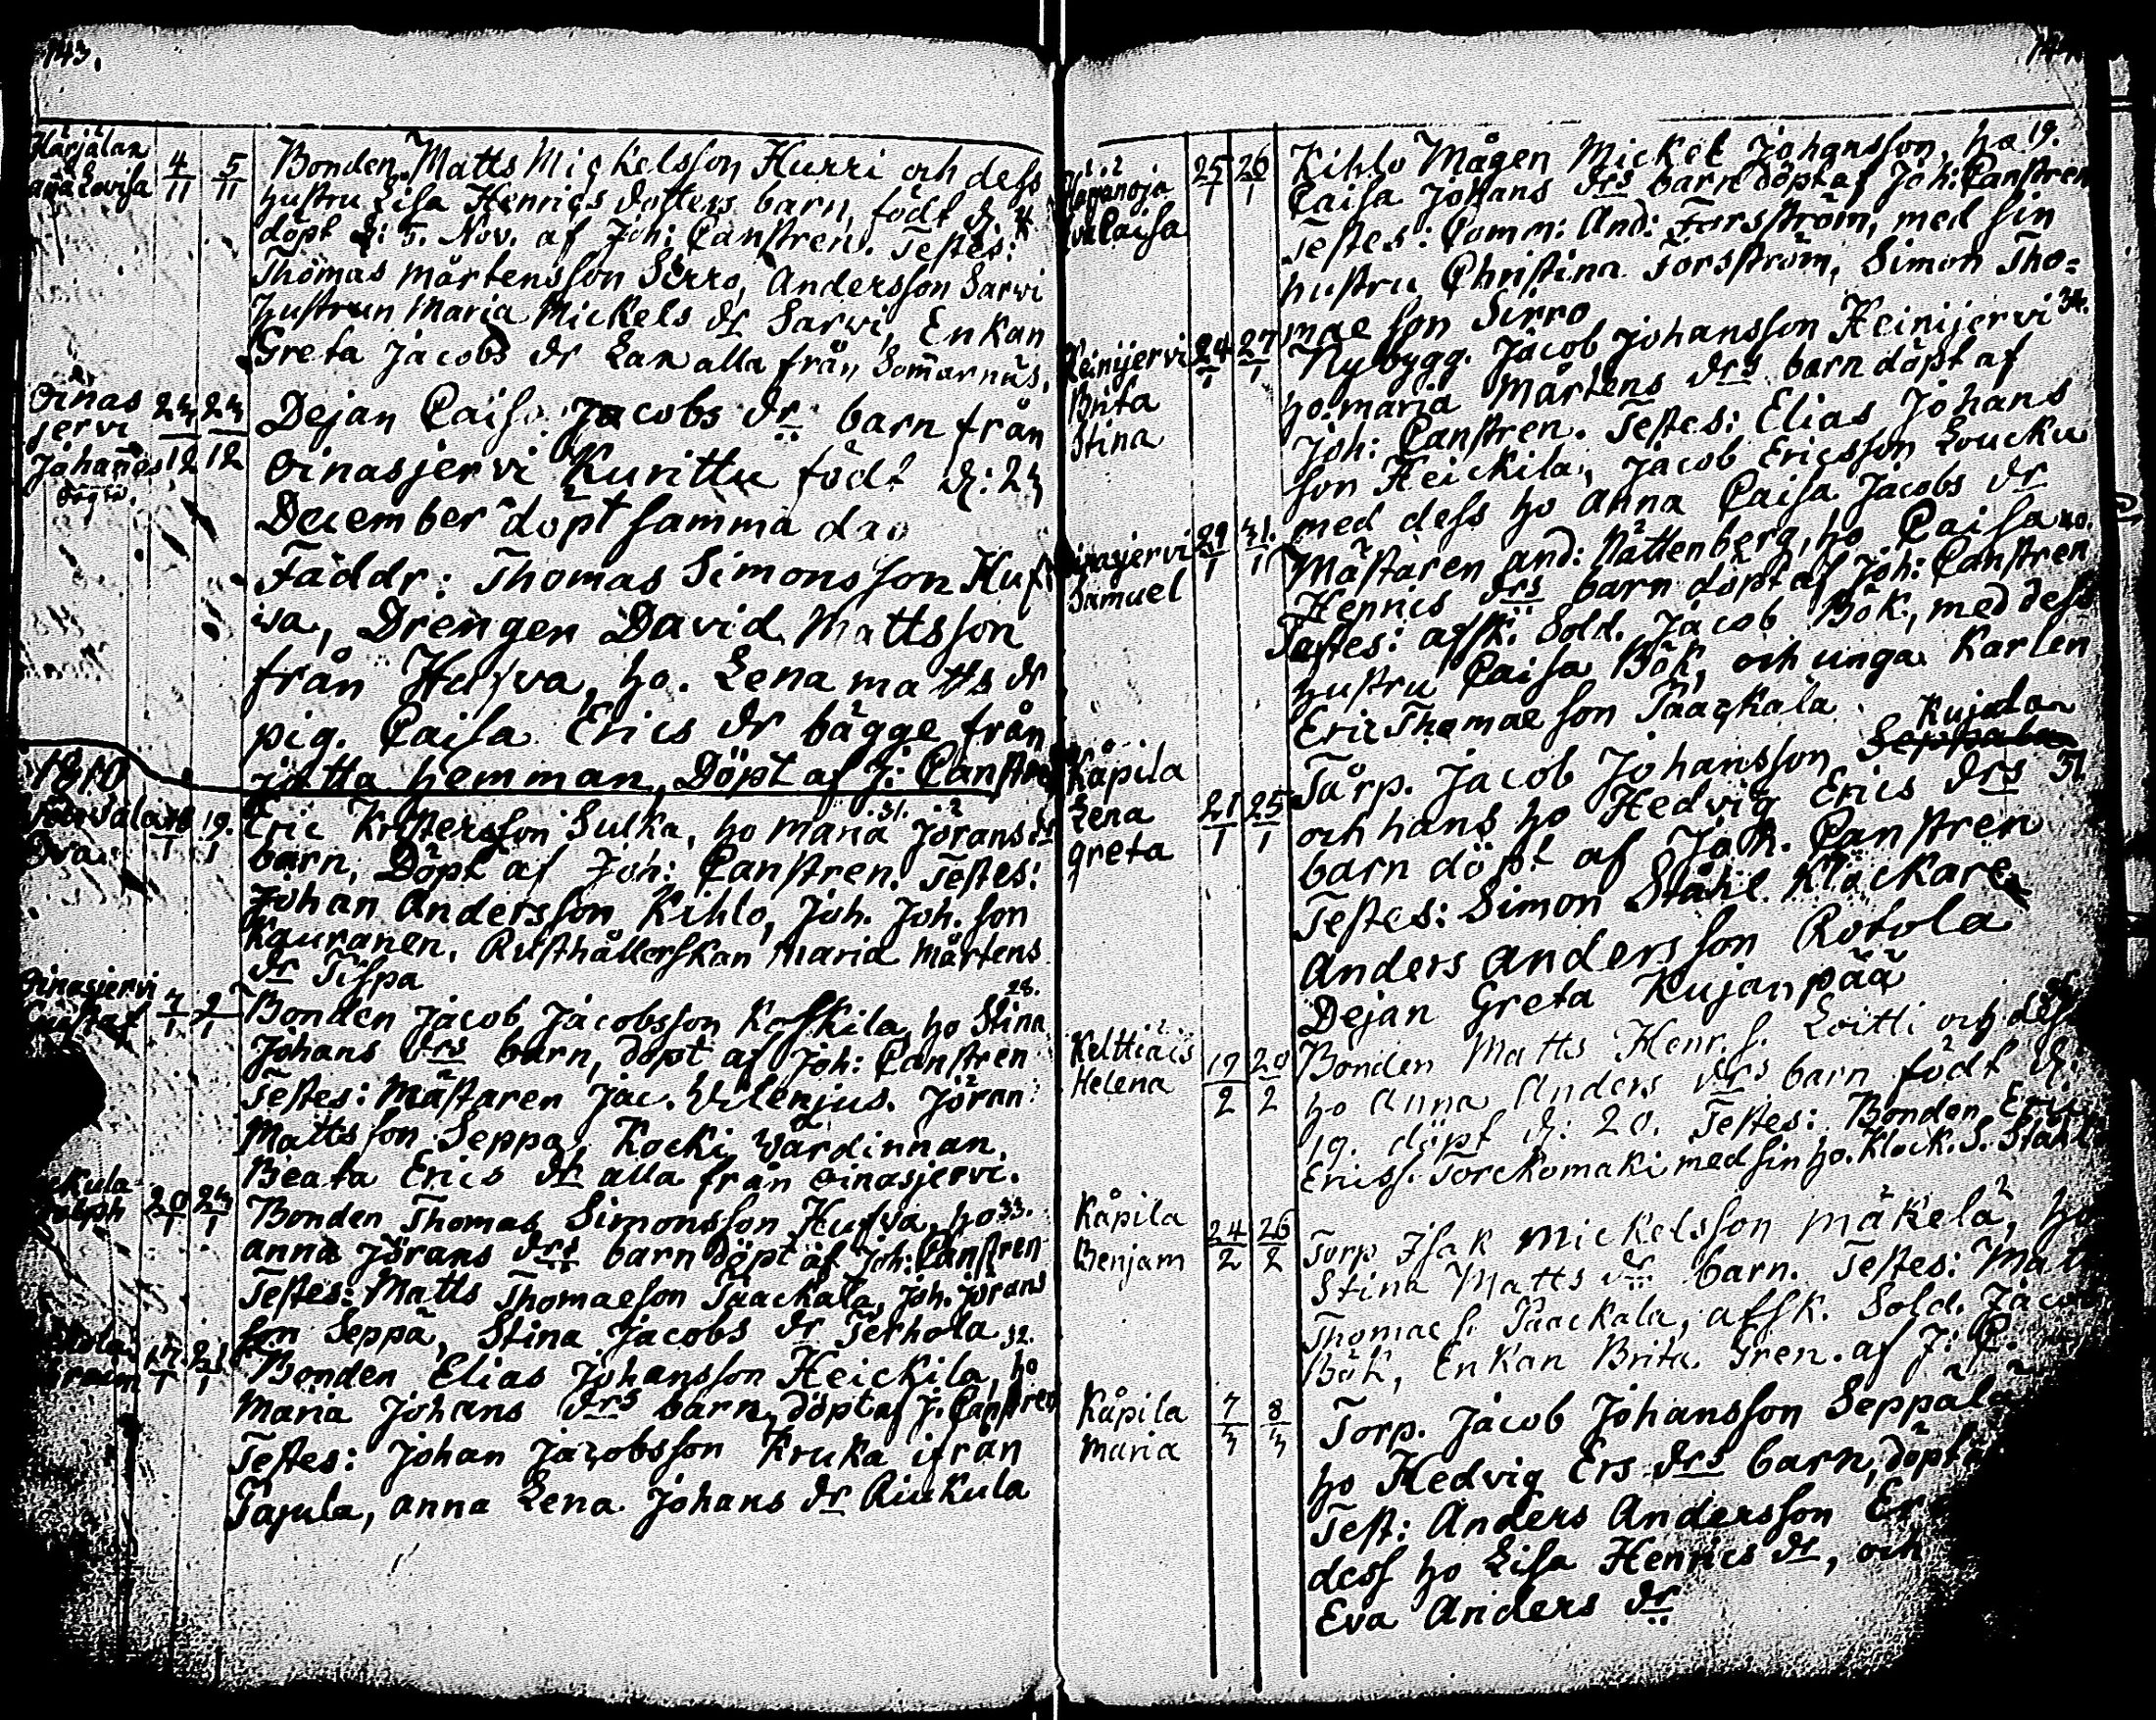 143.
Härjälan
Lovisa
4/11 5/11
Bonden Matts Mickelsson Hurri och dess
hustru Lisa Henrics dotters barn, född d: 4.
döpt d: 5. Nov. af Joh: Canstren. Testes:
Thomas Mårtensson Sirro, Andersson Sarvi
Hustrun Maria Mickels dr Sarvi, Enkan
Greta Jacobs dr Lax alla från Somarnäs.
Oinas
jervi
Johannes
24/12 24/12
Dejan Caisa Jacobs dr barn från
Oinasjervi Kurittu född d: 24
December döpt samma dag
Fäddr: Thomas Simonsson Huf
wa, Drengen David Mattsson
från Hufva, ho. Lena matts dr
pig. Caisa Erics dr bägge från
jotta hemman, Döpt af J: Canstren
1810
Eva
18/1 19/1
Eric Kristersson Sulka, ho Maria Jörans dr 31.
barn, Döpt af Joh: Canstren. Testes:
Johan Andersson Kihlo, Joh. Joh. son
Kauranen, Rusthållerskan Maria Mårtens
dr Tispa
Oinasjervi
Gustaf
7/1 9/1
Bonden Jacob Jacobsson Koskila, ho Stina 28.
Johans drs barn, döpt af Joh: Canstren
Testes: Mästaren Jac. Wilenjus. Jöran
Mattsson Seppä, Kocki Wärdinnan
Beata Erics dr alla från Oinasjervi.
20/1 24/1
Bonden Thomas Simonsson Hufva, ho 33.
anna Jörans drs barn Döpt af Joh: Canstren
Testes: Matts Thomaeson Paackala, Joh. Jörans
son Seppä, Stina Jacobs dr Terhola
17/1 21/1
Bonden Elias Johansson Heickila, ho 32.
Maria Johans drs barn, döpt af J: Canstren
Testes: Johan Jacobsson Kruka ifrån
Pajula, anna Lena Johans dr Riukula
Hapanoja
Caisa
25/1 26/1
Kihlo Mågen Mickel Johansson, ho 19.
Caisa Johans drs barn döpt af Joh: Canstren
Testes: Comm: And: Forsström, med sin
hustru Christina Forsström, Simon Tho=
mae son Sirro
Heinijervi
Brita
Stina
24/1 27/1
Nybygg. Jacob Johansson Heinijervi 34.
ho: maria Mårtens drs barn döpt af
Joh: Canstren. Testes: Elias Johans
son Heickila, Jacob Ericsson Loucku
med dess ho anna Caisa Jacobs dr
Samuel
29/1 31/1
Mästaren and: Nättenberg, ho Caisa 40.
Henrics drs barn döpt af Joh: Canstren
Testes: afsk: Sold. Jacob Bök, med dess
hustru Caisa Bök, och unga Karlen
Eric Thomae son Paackala
Kåpila
Lena
greta
21/1 25/1
Tårp. Jacob Johansson Seppala Kujala
och hans ho Hedvig Erics drs 31
barn döpt af Joh. Canstren
Testes: Simon Ståhl Klåckare
Anders Andersson Rotola
Dejan Greta Kujanpää
Kelttiäis
Helena
19/2 20/2
Bonden Matts Henr. s. Loitti och dess
ho Anna Anders drs barn född d:
19. döpt d: 20. Testes: Bonden Eric
Erics s. Torckomaki med sin ho. Klock. S. Ståhl
Kåpila
Benjam
24/2 26/2
Torp Isak Mickelsson Mäkelä, ho
Stina Matts dr barn. Testes: Mat
Thomae s. Paackala, afsk. Sold. Jacob
Bök, Enkan Brita Gren. af J: C.
Kåpila
Maria
7/3 8/3
Torp. Jacob Johansson Seppälä
ho Hedvig Ers drs barn, döpt
Test: Anders Andersson
dess ho Lisa Henrics dr, och
Eva Anders dr